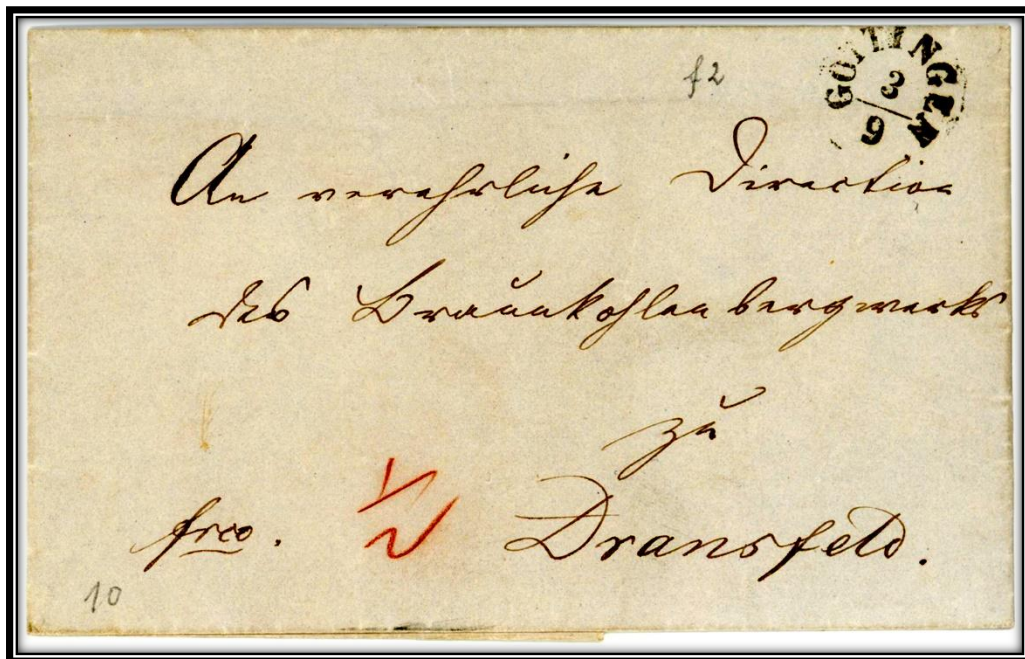 f2
GOTTINGEN
3
9
An verehrliche Direction
des Braunkohlenbergwerks
zu
frco. 1/2 Dransfeld.
10